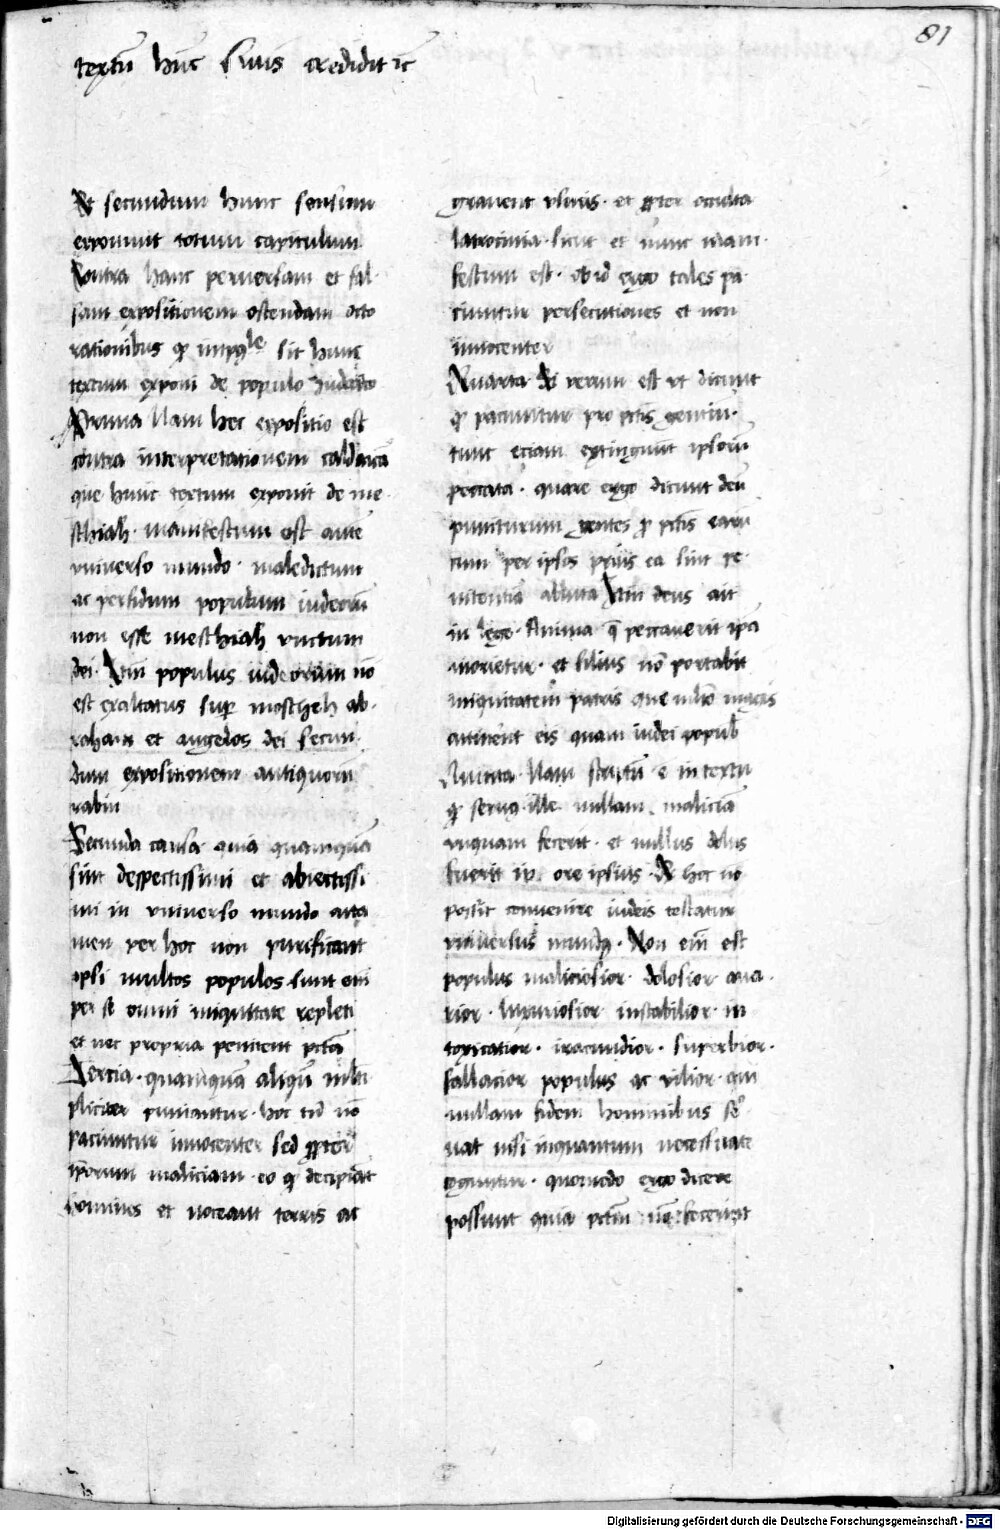 81
textū hūc suis credidit ⁊c̄
Et secundum hunc sensum
exponunt totum capitulum
Contra hanc peruersam et fal-
sam expositionem ostendam octo
rationibus ꝙ impꝫle sit hunc
textum exponi de populo Judaico
Prima Nam hec expositio est
contra interpretationem caldaicā
que hunc textum exponit de me-
schiah · manifestum est autē
vniuerso mundo · maledictum
ac perfidum populum iudeorū
non esse meschiah vnctum
dei · Itm̄ populus iudeorum nō
est exaltatus suꝑ moscheh ab-
raham et angelos dei secun-
dum expositionem antiquorū
rabin
Secunda causa · quia quamquā
sint despectissimi et abiectissi
mi in vniuerso mundo atta
men per hoc non purificant
ipsi multos populos · sunt em̄
per se omni iniquitate repleti
et nec propria penitent pctā
Tercia · quamquā aliqn̄ mlti
pliciter puniantur · hoc tn̄ nō
paciuntur innocenter sed ꝓpter
ip̄orum maliciam · eo ꝙ decipiāt
homines et noceant terris ac
grauent vsuris · et ꝓpter occulta
latrocinia · sicut et nunc mani-
festum est · ob id ergo tales pa-
ciuntur persecutiones et non
innocenter
Quarta Si verum est vt dicunt
ꝙ paciuntur pro pctīs gentiū ·
tunc eciam extingunt ipsorū
peccata · quare ergo dicunt deū
puniturum gentes ꝓ pctīs earū
cum per ipsos prius ea sint pe-
nitentia abluta Itm̄ deus ait
in lege · Anima q̄ peccauerit ip̄a
morietur · et filius nō portabit
iniquitatem patris que mlto magis
attinent eis quam iudei popub
Quinta Nam scriptū ē in textu
ꝙ seruꝰ ille nullam maliciā
vnquam fecerit · et nullus dolus
fuerit in ore ipsius · Et hoc nō
possit conuenire iudeis testatur
vniuersus mundꝰ · Non em̄ est
populus maliciosior · dolosior aua-
rior · luxuriosior instabilior · in
toxicatior · iracundior · superbior ·
fallacior populus ac vilior · qui
nullam fidem hominibus ser-
uat nisi inquantum necessitate
coguntur · quomodo ergo dicere
possunt quia pctm̄ nō fecerint
Digitalisierung gefördert durch die Deutsche Forschungsgemeinschaft - DFG